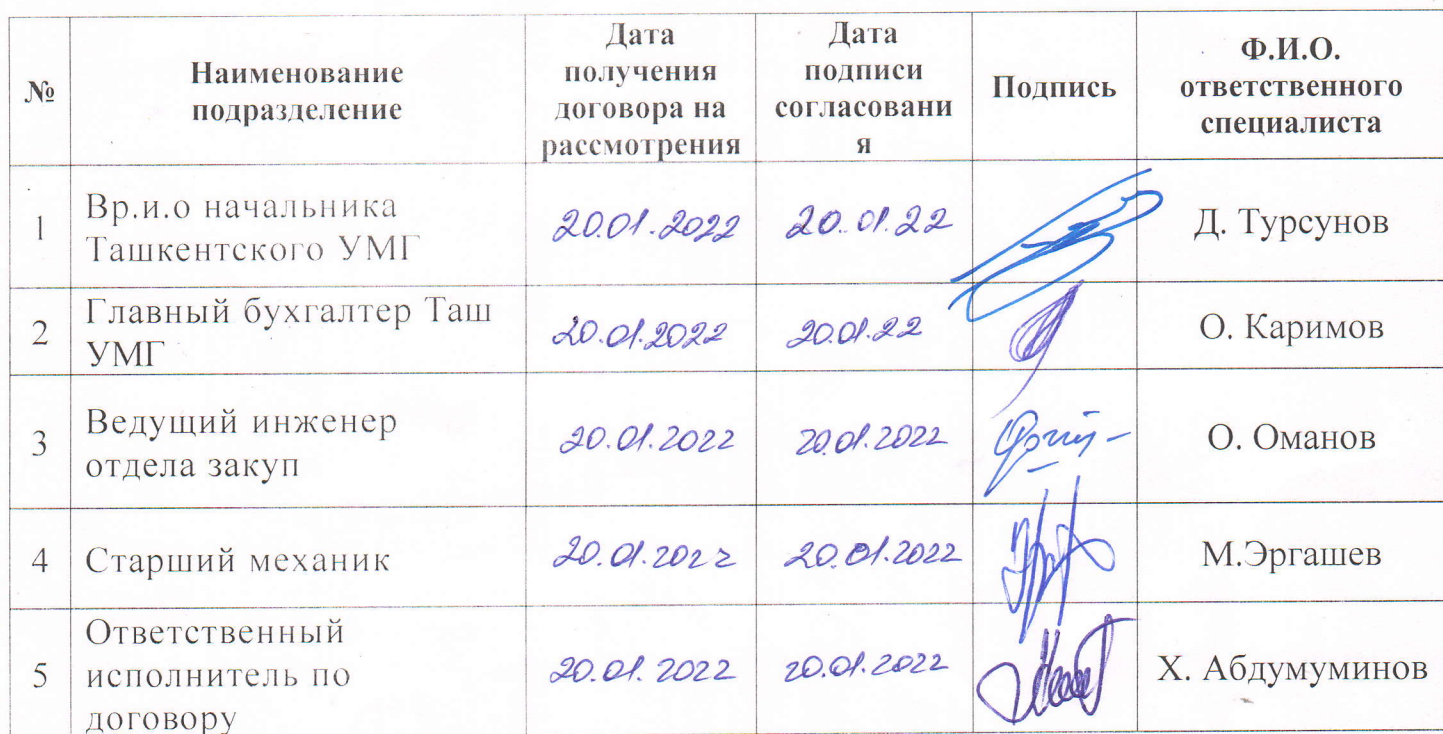 №
Наименование
подразделение
Дата
получения
договора на
рассмотрения
Дата
подписи
согласовани
я
Подпись
Ф.И.О.
ответственного
специалиста
1
Вр.и.о начальника
Ташкентского УМГ
20.01.2022
20.01.22
Д. Турсунов
2
Главный бухгалтер Таш
УМГ
20.01.2022
20.01.22
О. Каримов
3
Ведущий инженер
отдела закуп
20.01.2022
20.01.2022
О. Оманов
4
Старший механик
20.01.2022
20.01.2022
М.Эргашев
5
Ответственный
исполнитель по
договору
20.01.2022
20.01.2022
Х. Абдумуминов